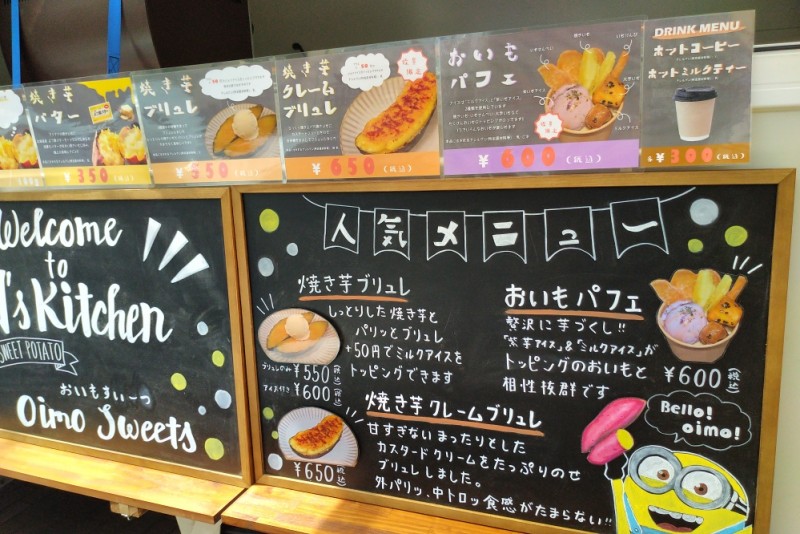 焼き芋
バター
350
焼き芋
ブリュレ
¥550(税込)
焼き芋
クレーム
ブリュレ
数量
限定
¥650(税込)
おいも
パフェ
数量
限定
¥600(税込)
DRINK MENU
ホットコーヒー
ホットミルクティー
¥300(税込)
Welcome
to
's Kitchen
SWEET POTATO
おいもすいーつ
Oimo Sweets
人気メニュー
焼き芋ブリュレ
しっとりした焼き芋と
パリッとブリュレ
+50円でミルクアイスを
トッピングできます
ブリュレのみ ¥550(税込)
アイス付き ¥600(税込)
焼き芋クレームブリュレ
甘すぎないまったりとした
カスタードクリームをたっぷりのせ
ブリュレしました。
外パリッ、中トロッ食感がたまらない!!
¥650(税込)
おいもパフェ
贅沢に芋づくし!!
"紫芋アイス"&"ミルクアイス"が
トッピングのおいもと
相性抜群です
¥600(税込)
Bello!
oimo!